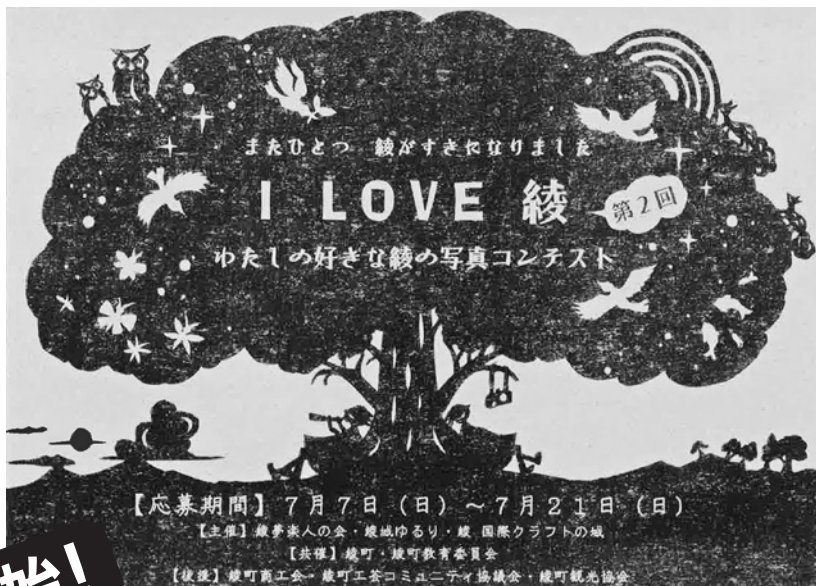 またひとつ 綾がすきになりました
I LOVE 綾
第2回
わたしの好きな綾の写真コンテスト
【応募期間】7月7日（日）～7月21日（日）
【主催】綾夢楽人の会・綾城ゆるり・綾 国際クラフトの城
【共催】綾町・綾町教育委員会
【後援】綾町商工会・綾町工芸コミュニティ協議会・綾町観光協会
始!